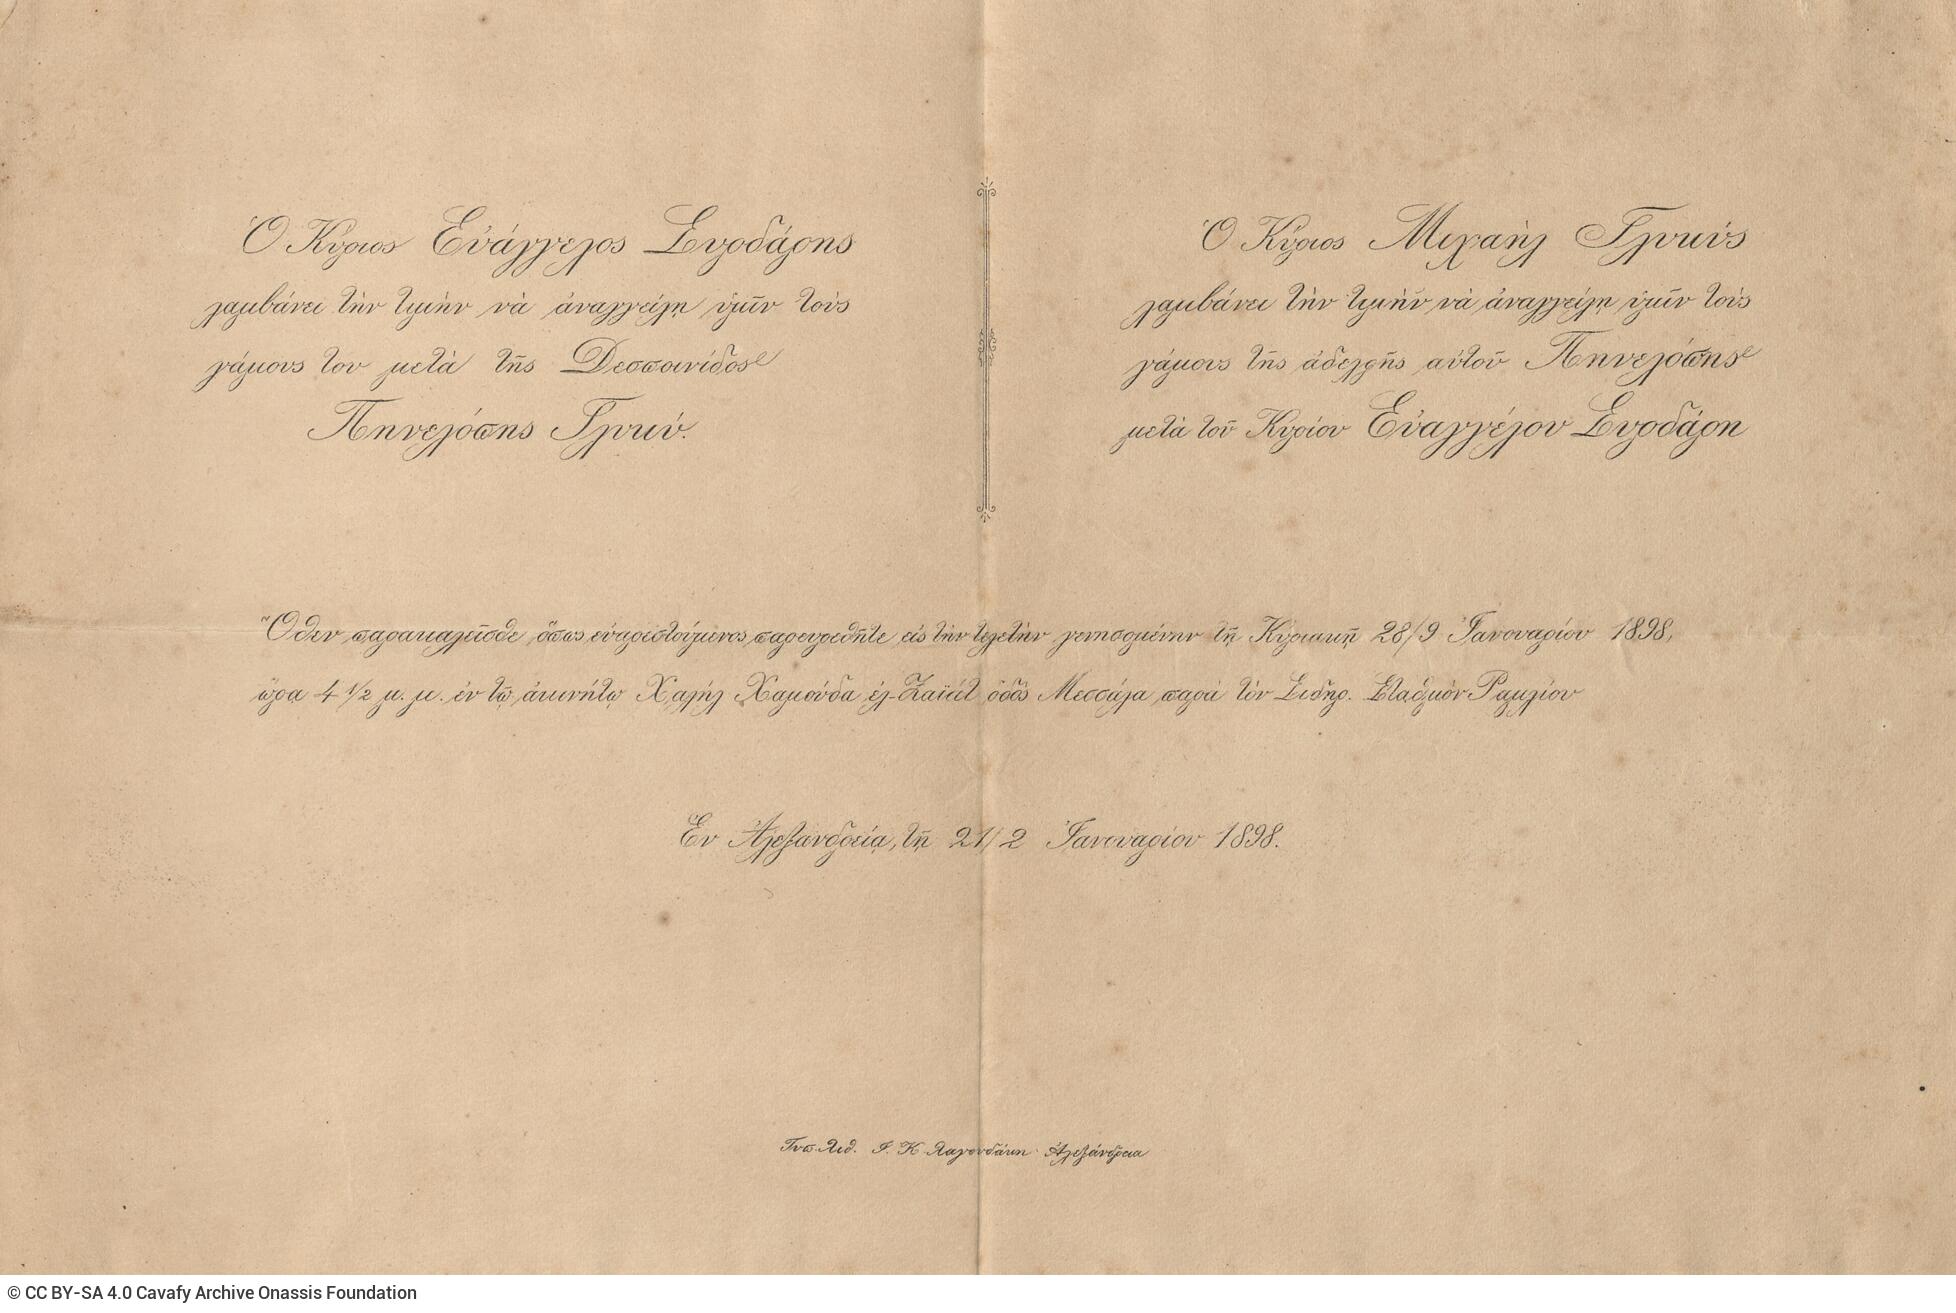 Ὁ Κύριος Εὐάγγελος Ξυλοδάρης
λαμβάνει τὴν τιμὴν νὰ ἀναγγείλῃ ὑμῖν τοὺς
γάμους του μετὰ τῆς Δεσποινίδος
Πηνελόπης Γλυκύ.
Ὁ Κύριος Μιχαὴλ Γλυκύς
λαμβάνει τὴν τιμὴν νὰ ἀναγγείλῃ ὑμῖν τοὺς
γάμους τῆς ἀδελφῆς αὐτοῦ Πηνελόπης
μετὰ τοῦ Κυρίου Εὐαγγέλου
Ὅθεν παρακαλεῖσθε ὅπως εὐαρεστούμενος παρευρεθῆτε εἰς τὴν τελετὴν γενησομένην τῇ Κυριακῇ 28/9 Ἰανουαρίου 1898,
ὥρα 4 1/2 μ. μ. ἐν τῷ ἀκινήτῳ Χαλὴλ Χαμούδα ἐλ-Ζαϊὰτ ὁδὸς Μεσσάλα παρὰ τὸν Σιδηρ. Σταθμὸν Ραμλίου
Ἐν Ἀλεξανδρείᾳ, τῇ 21/2 Ἰανουαρίου 1898.
Τυπ. Λιθ. Ι. Κ. Λαγουδάκη Ἀλεξάνδρεια
© CC BY-SA 4.0 Cavafy Archive Onassis Foundation